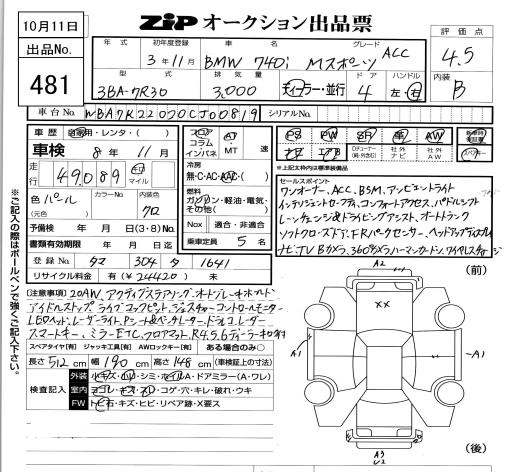 10月11日
出品No.
481
ZIP オークション出品票
評価点
4.5
内装
B
年式 初年度登録 車名 グレード
3年11月 BMW 740i Mスポーツ ACC
型式 排気量 ドア ハンドル
3BA-7R30 3,000 ディーラー・並行 4 左・右
車台No. WBA7K22000CJ00819 シリアルNo.
車歴 自家用・レンタ・( )
車検 8年11月
走行 49089 キロ マイル
色 パール カラーNo. 内装色 クロ
(元色)
予備検 年 月 日(3・8)No.
書類有効期限 年 月 日迄
登録No. タマ 304 タ 1641
リサイクル料金 有(¥24420) 未
フロア コラム インパネ AT MT 速
冷房
無・C・AC・AAC・( )
燃料
ガソリン・軽油・電気・その他( )
Nox 適合・非適合
乗車定員 5名
PS PW SR 革 AW
ナビ エアB DチューナーTV (純・社外含む) 社外ナビ 社外AW
新車時保証書
スペアキー
*上記太枠内は標準装備品
セールスポイント
ワンオーナー、ACC、BSM、アンビエントライト
インテリジェントセーフティ、コンフォートアクセス、パドルシフト
レーンチェンジ&ドライビングアシスト、オートトランク
ソフトクローズドア、F.Rパークセンサー、ヘッドアップディスプレイ
ナビ、TV Bカメラ、360°カメラ ハーマンカードン、ワイヤレスチャージ
[注意事項] 20AW、アクティブステアリング、オートブレーキホールド
アイドルストップ、ライブコックピット、ジェスチャーコントロール
LEDヘッド、レーザーライト、Pシート&ベンチレーター、ドラレコ、レーダー
スマートキー、ミラーETC、フロアマット、R4.5.6ディーラー記録
スペアタイヤ[有] ジャッキ工具[有] AWロックキー[有] ある場合のみ○
長さ512cm 幅190cm 高さ148cm (車検証上の寸法)
検査記入
外装 キズ・凹・シミ・オイルA・ドアミラー(A・ワレ)
室内 ヨゴレ・キズ・スレ・コゲ・穴・キレ・破れ・ウキ
FW トビ石・キズ・ヒビ・リペア跡・X要ス
※ご記入の際はボールペンで強くご記入下さい。
(前)
A2
XX
A1
A1
A3
U2
(後)